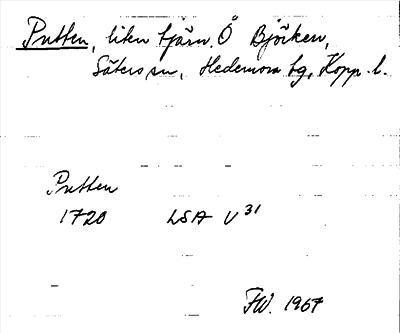 Putten, liten tjärn. Ö Björken,
Säters sn, Hedemora tg, Kopp. l.
Putten
1720 LSA U 31
FW. 1967